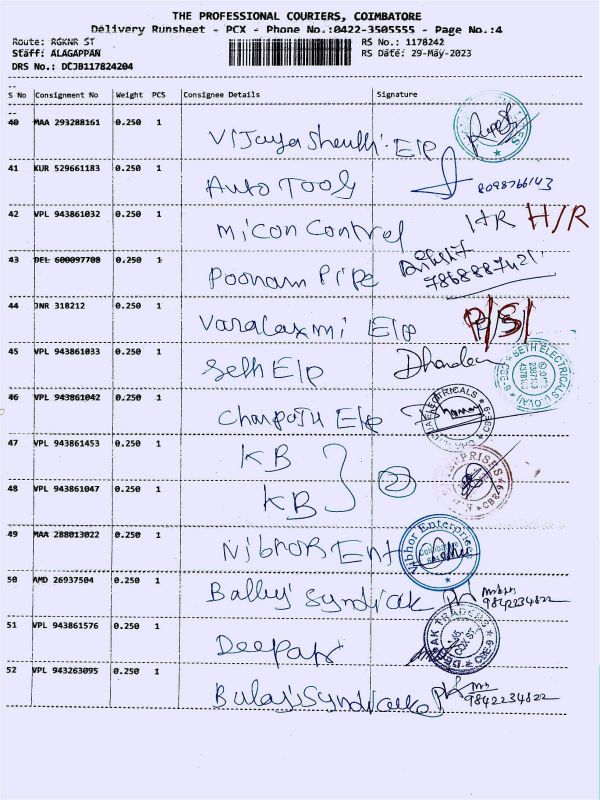 THE PROFESSIONAL COURIERS, COIMBATORE
Delivery Runsheet - PCX - Phone No.:0422-3505555 - Page No.:4
Route: RGKNR ST RS No.: 1178242
Staff: ALAGAPPAN RS Date: 29-May-2023
DRS No.: DCJB117824204
S No Consignment No Weight PCS Consignee Details Signature
40 MAA 293288161 0.250 1 E/P
41 KUR 529661183 0.250 1 Auto Tools 8098766143
42 VPL 943861032 0.250 1 Micon Control H/R H/R
43 DEL 600097708 0.250 1 Poonam Pipe
44 JNR 318212 0.250 1 Varalaxmi E/p P/S/
45 VPL 943861033 0.250 1 Seth E/p SETH ELECTRICALS
46 VPL 943861042 0.250 1 E/p
47 VPL 943861453 0.250 1 KB
48 VPL 943861047 0.250 1 KB 2
49 MAA 288013022 0.250 1 Nibhor Ent Vibhor Enterprise
50 AMD 26937504 0.250 1 9842234822
51 VPL 943861576 0.250 1 Deepak DEEPAK TRADERS CBE-9
52 VPL 943263095 0.250 1 9842234822